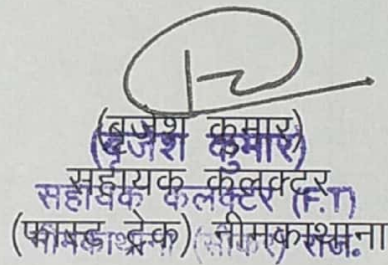 (बृजेश कुमार)
(बृजेश कुमार)
सहायक कलक्टर
सहायक कलेक्टर (F.T)
(फास्ट ट्रेक) नीमकाथाना
नीमकाथाना (सीकर) राज.